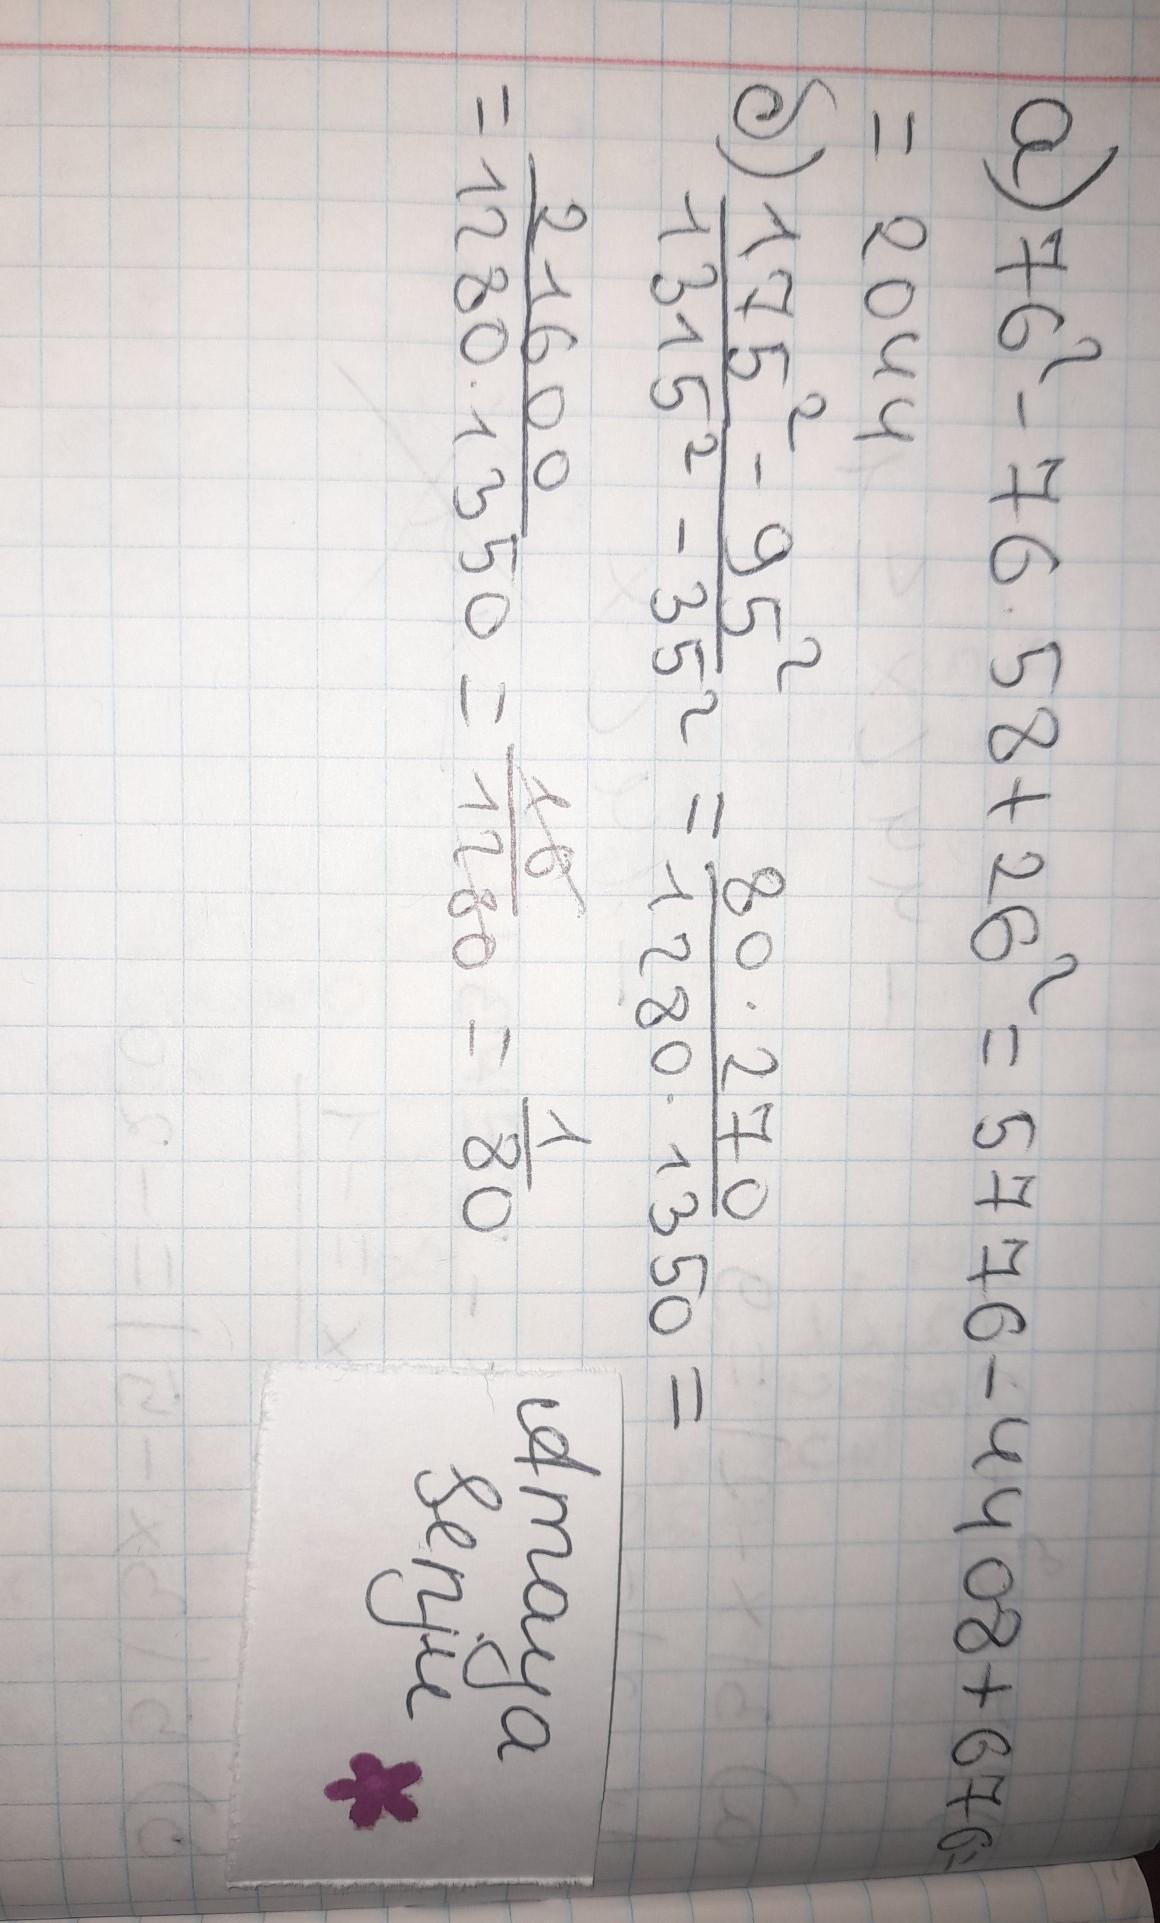 а) 76² - 76 · 58 + 26² = 5776 - 4408 + 676 =
= 2044
б) 175² - 95² / 1315² - 35² = 80 · 270 / 1280 · 1350 =
= 21600 / 1280 · 1350 = 16 / 1280 = 1 / 80
Amaya
Senju